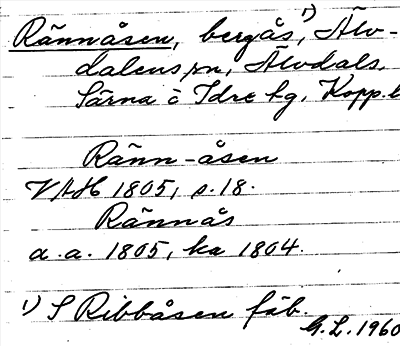 Rännåsen, bergås,¹) Älv-
dalens sn, Älvdals,
Särna o Idre tg, Kopp.l
Ränn-åsen
VAH 1805, s. 18.
Rännås
a. a. 1805, ka 1804.
¹) S Ribbåsen fäb.
G.L. 1960